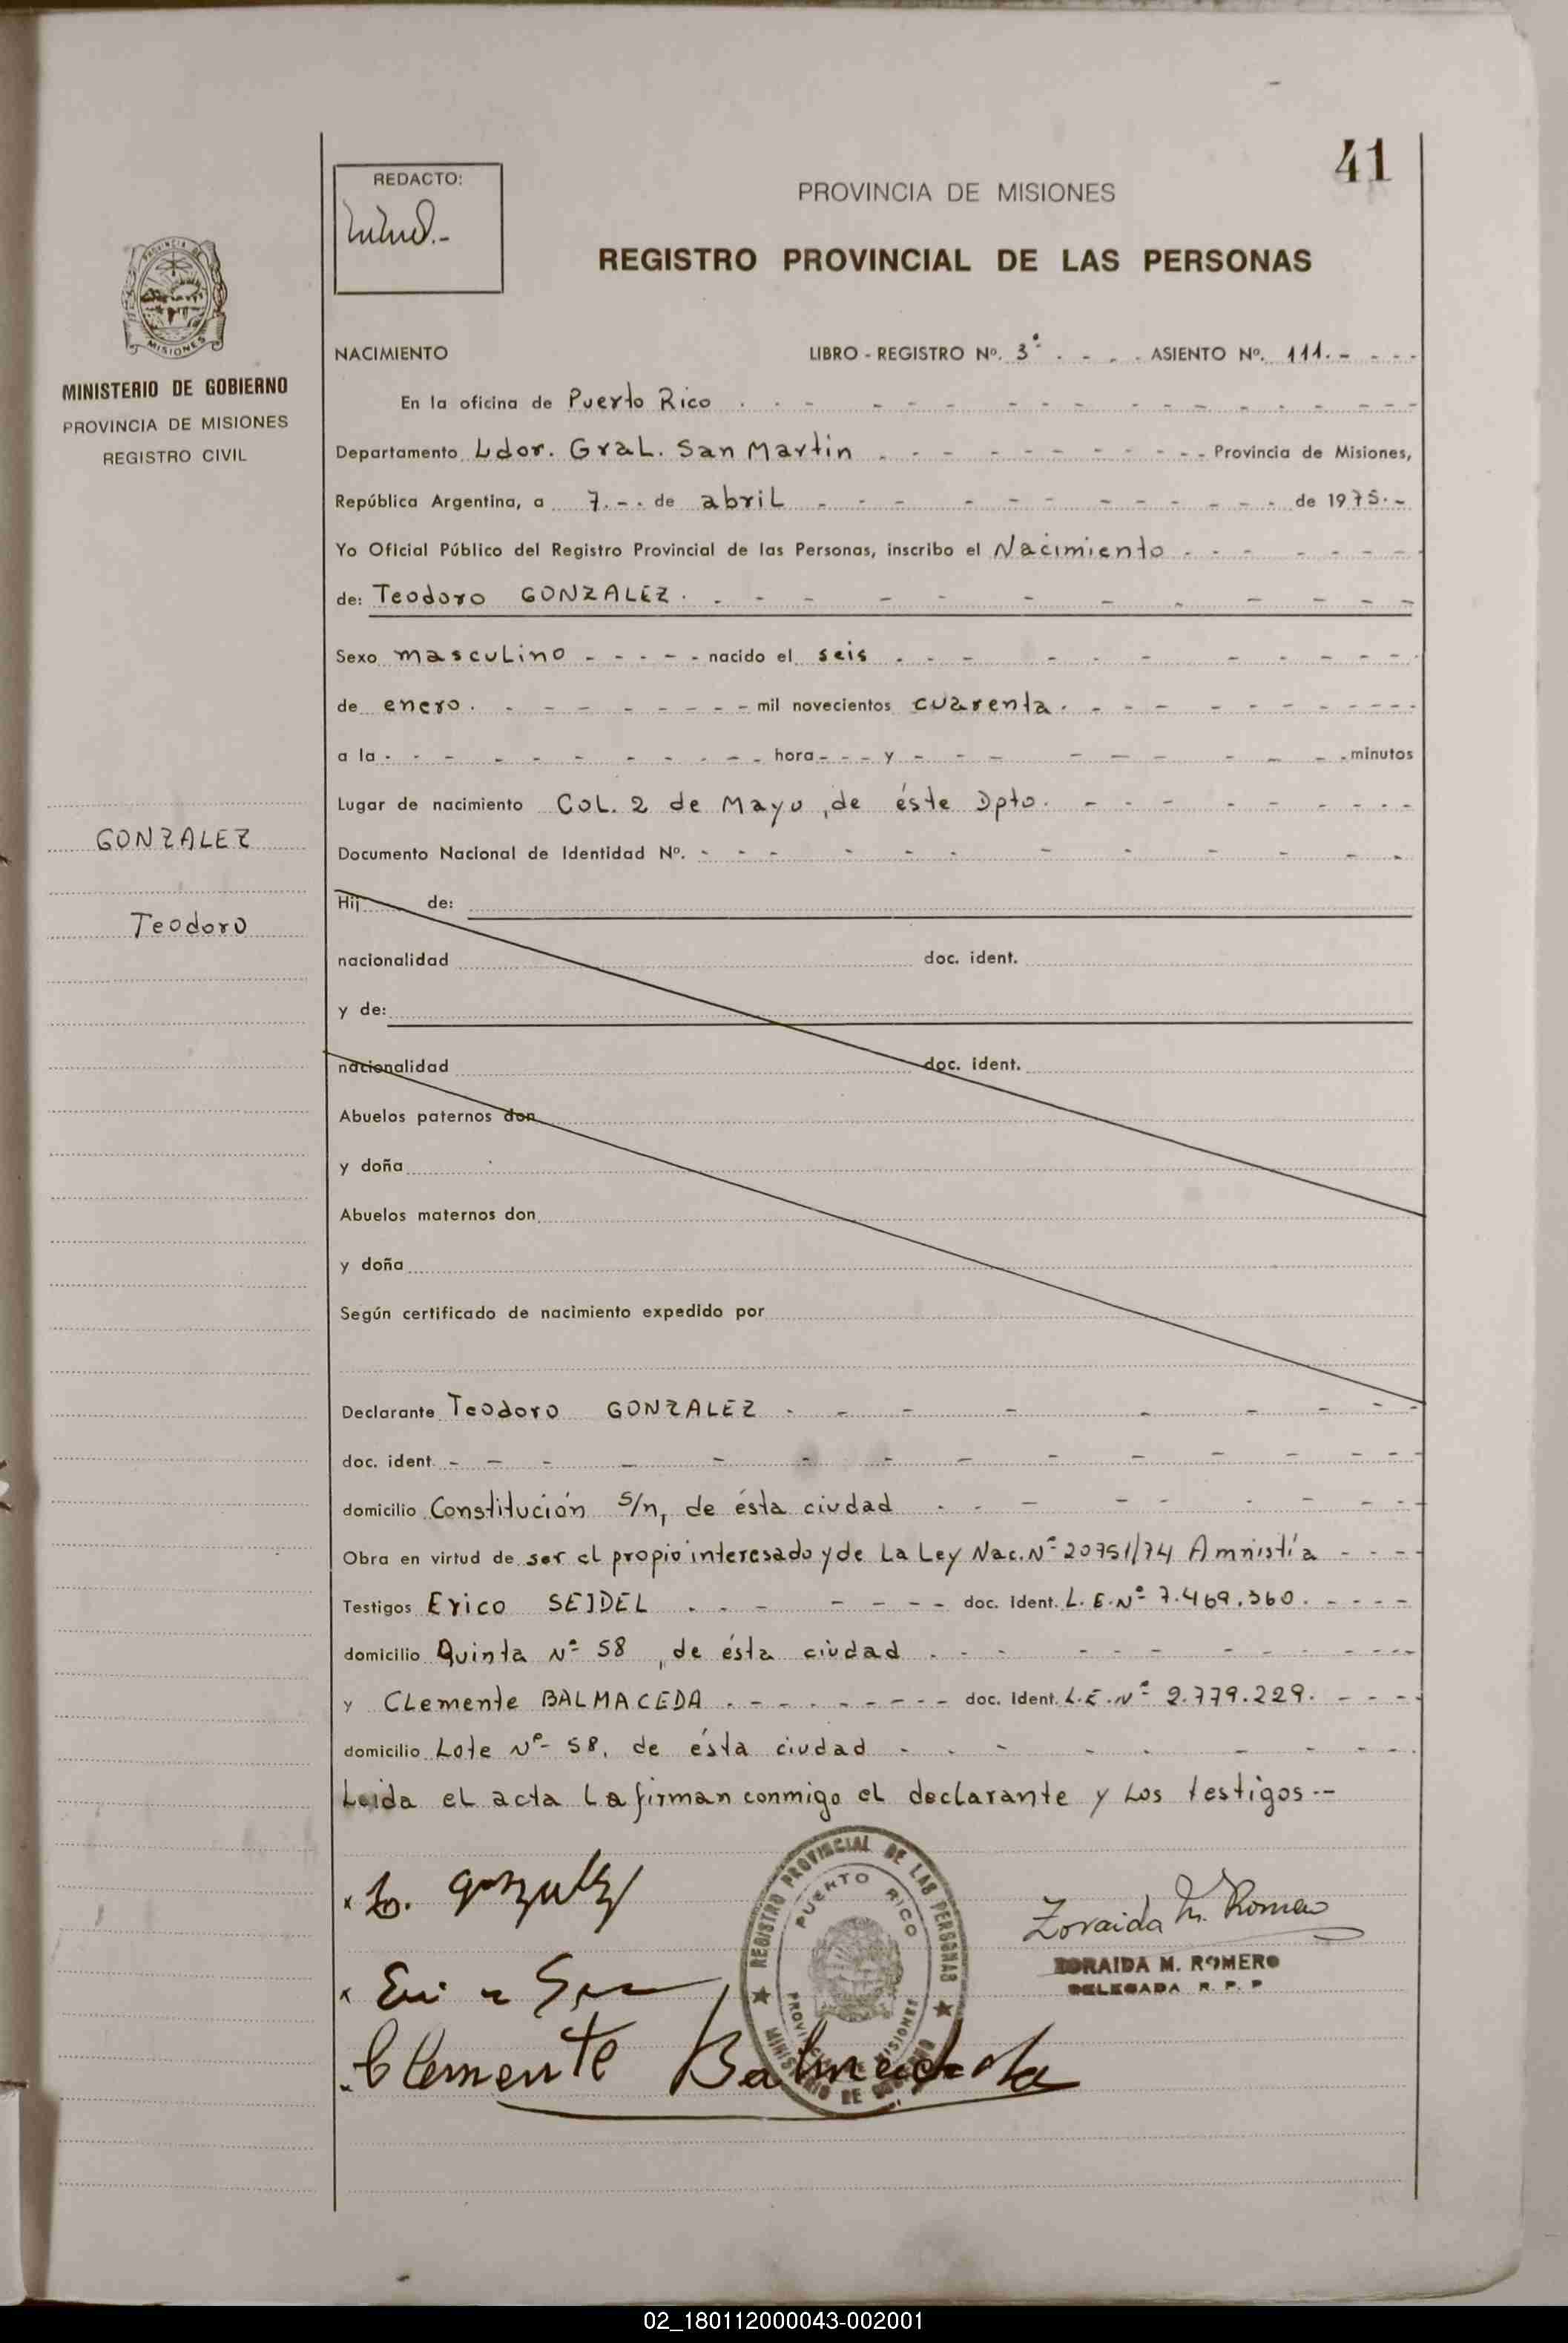 41
REDACTO:
PROVINCIA DE MISIONES
REGISTRO PROVINCIAL DE LAS PERSONAS
PROVINCIA DE
MISIONES
MINISTERIO DE GOBIERNO
PROVINCIA DE MISIONES
REGISTRO CIVIL
NACIMIENTO LIBRO - REGISTRO Nº. 3º - - - - ASIENTO Nº. 111.- - - -
En la oficina de Puerto Rico
Departamento Ldor. GraL. San Martin Provincia de Misiones,
República Argentina, a 7.-. de abriL de 1975.-
Yo Oficial Público del Registro Provincial de las Personas, inscribo el Nacimiento
de: Teodoro GONZALEZ.
Sexo mascuLino - - - - - nacido el seis
de enero. mil novecientos cuarenta.
a la hora - - - y minutos
Lugar de nacimiento CoL. 2 de Mayo, de éste Dpto.
GONZALEZ
Documento Nacional de Identidad Nº.
Hij de:
Teodoro
nacionalidad doc. ident.
y de:
nacionalidad doc. ident.
Abuelos paternos don
y doña
Abuelos maternos don
y doña
Según certificado de nacimiento expedido por
Declarante Teodoro GONZALEZ
doc. ident.
domicilio Constitución S/n, de ésta ciudad
Obra en virtud de ser el propio interesado y de La Ley Nac. Nº 20751/74 Amnistía
Testigos Erico SEIDEL doc. Ident. L.E.Nº 7.469.360.
domicilio Quinta Nº 58, de ésta ciudad
y CLemente BALMACEDA doc. Ident. L.E.Nº 2.779.229.
domicilio Lote Nº 58, de ésta ciudad
Leida eL acta La firman conmigo el declarante y Los testigos.--
Zoraida M. Romero
ZORAIDA M. ROMERO
DELEGADA R. P. P
REGISTRO PROVINCIAL DE LAS PERSONAS
PUERTO RICO
PROVINCIA DE MISIONES
MINISTERIO DE GOBIERNO
Clemente Balmaceda
02_180112000043-002001